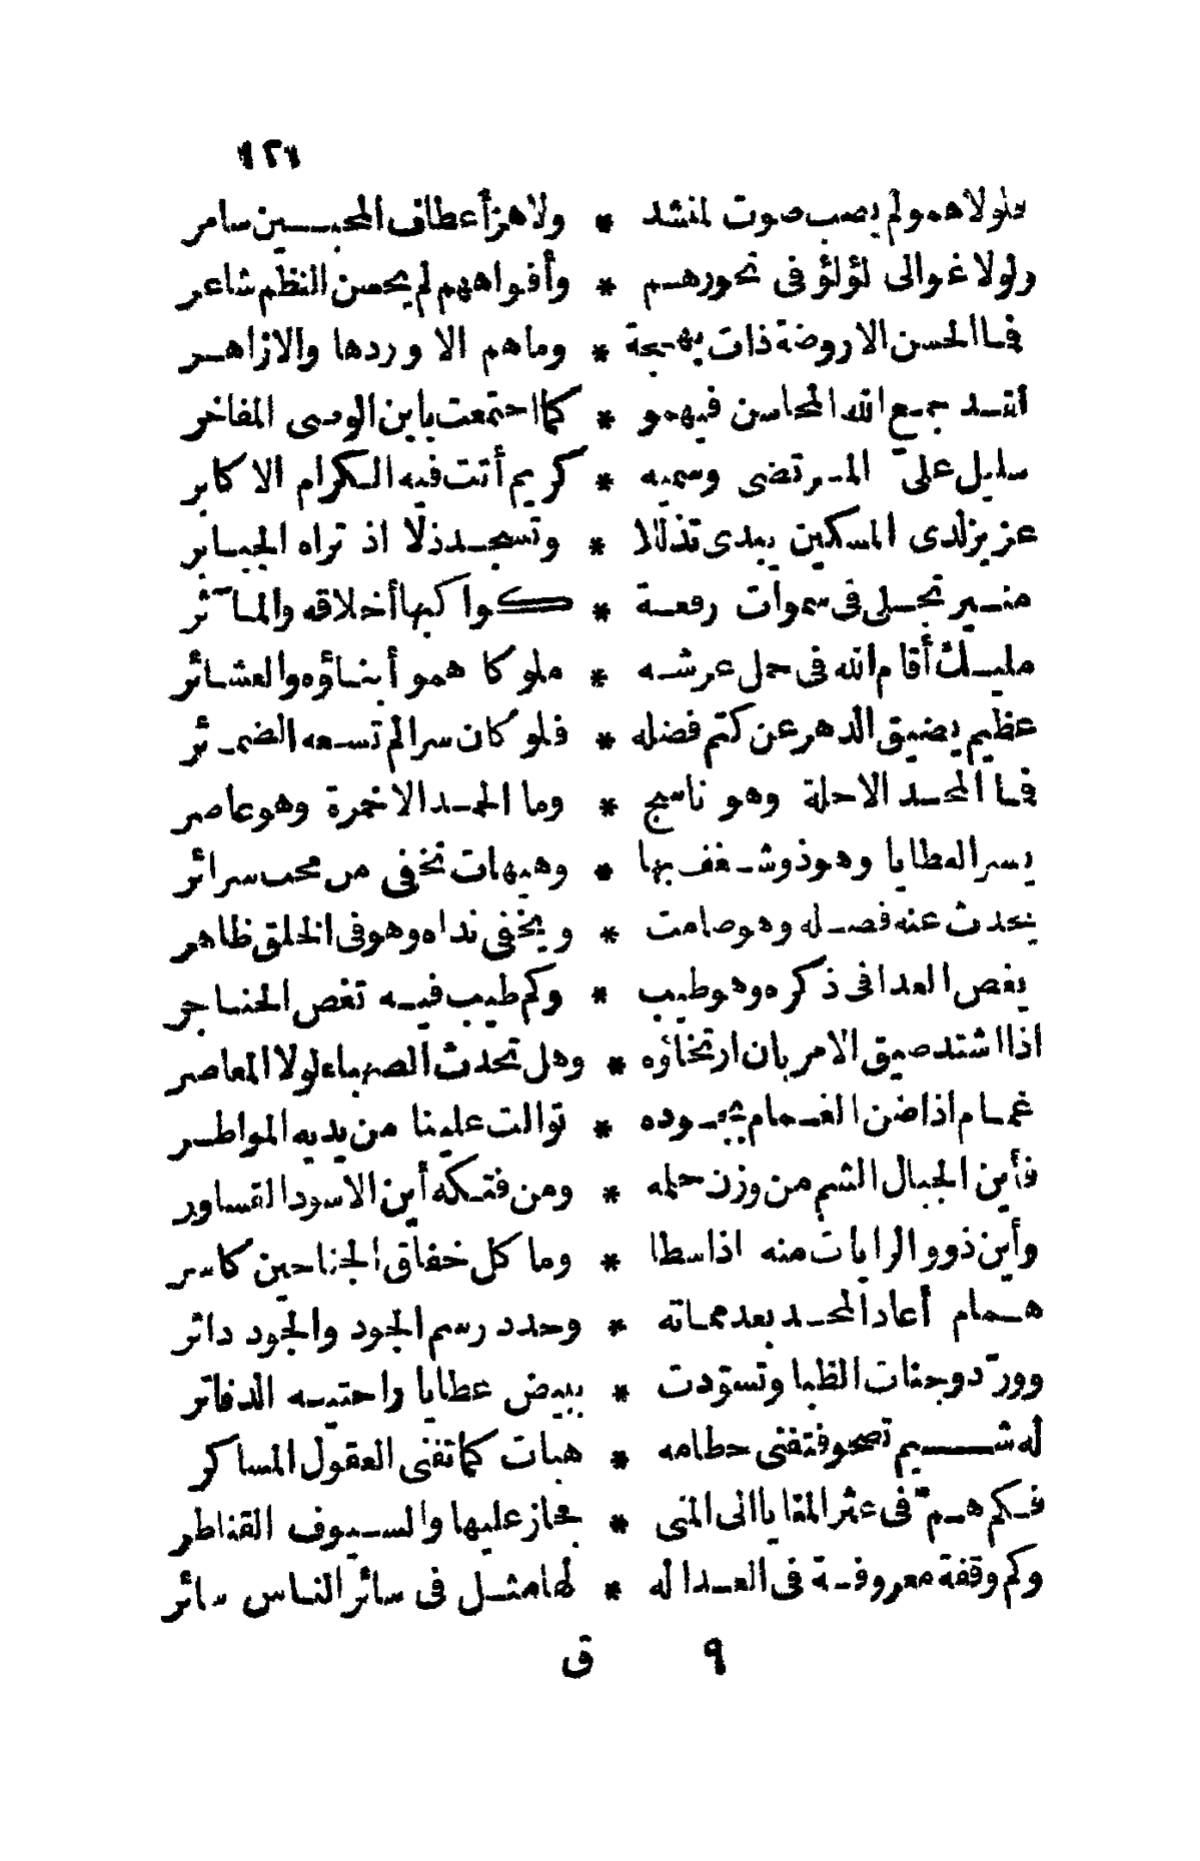 ١٢٩
فلولاهمو لم يصب صوت لمنشد * ولا هز أعطاف المحبين سامر
ولولا غوالى لؤلؤ فى نحورهم * وأفواههم لم يحسن النظم شاعر
فما الحسن الا روضة ذات بهجة * وما هم الا وردها والازاهر
لقد جمع الله المحاسن فيهمو * كما اجتمعت بابن الوصى المفاخر
سليل على المرتضى وسميه * كريم أتت فيه الكرام الاكابر
عزيز لدى المسكين يبدى تذللا * وتسجد ذلا اذ تراه الجبابر
منير تجلى فى سموات رفعة * كواكبها أخلاقه والمآثر
مليك أقام الله فى حمل عرشه * ملوكا همو أبناؤه والعشائر
عظيم يضيق الدهر عن كتم فضله * فلو كان سرا لم تسعه الضمائر
فما المجد الا حلة وهو ناسج * وما الحمد الا خمرة وهو عاصر
يسر العطايا وهو ذو شغف بها * وهيهات تخفى من محب سرائر
يحدث عنه فضله وهو صامت * ويخفى نداه وهو فى الخلق ظاهر
يغص العدا فى ذكره وهو طيب * وكم طيب فيه تغص الحناجر
اذا اشتد ضيق الامر بان ارتخاؤه * وهل تحدث الصهباء لولا المعاصر
غمام اذا ضن الغمام بجوده * توالت علينا من يديه المواطر
فأين الجبال الشم من وزن حلمه * ومن فتكه أين الاسود القساور
وأين ذوو الرايات منه اذا سطا * وما كل خفاق الجناحين كاسر
همام أعاد المجد بعد مماته * وجدد رسم الجود والجود داثر
وورّد وجنات الظبا وتسوّدت * ببيض عطايا راحتيه الدفاتر
له شيم تصحو فتفنى حطامه * هبات كما تفنى العقول المساكر
فكم همّ فى عثر المقايا الى المنى * مجاز عليها والسيوف القناطر
وكم وقفة معروفة فى العدا له * لها مثل فى سائر الناس سائر
٩ ق